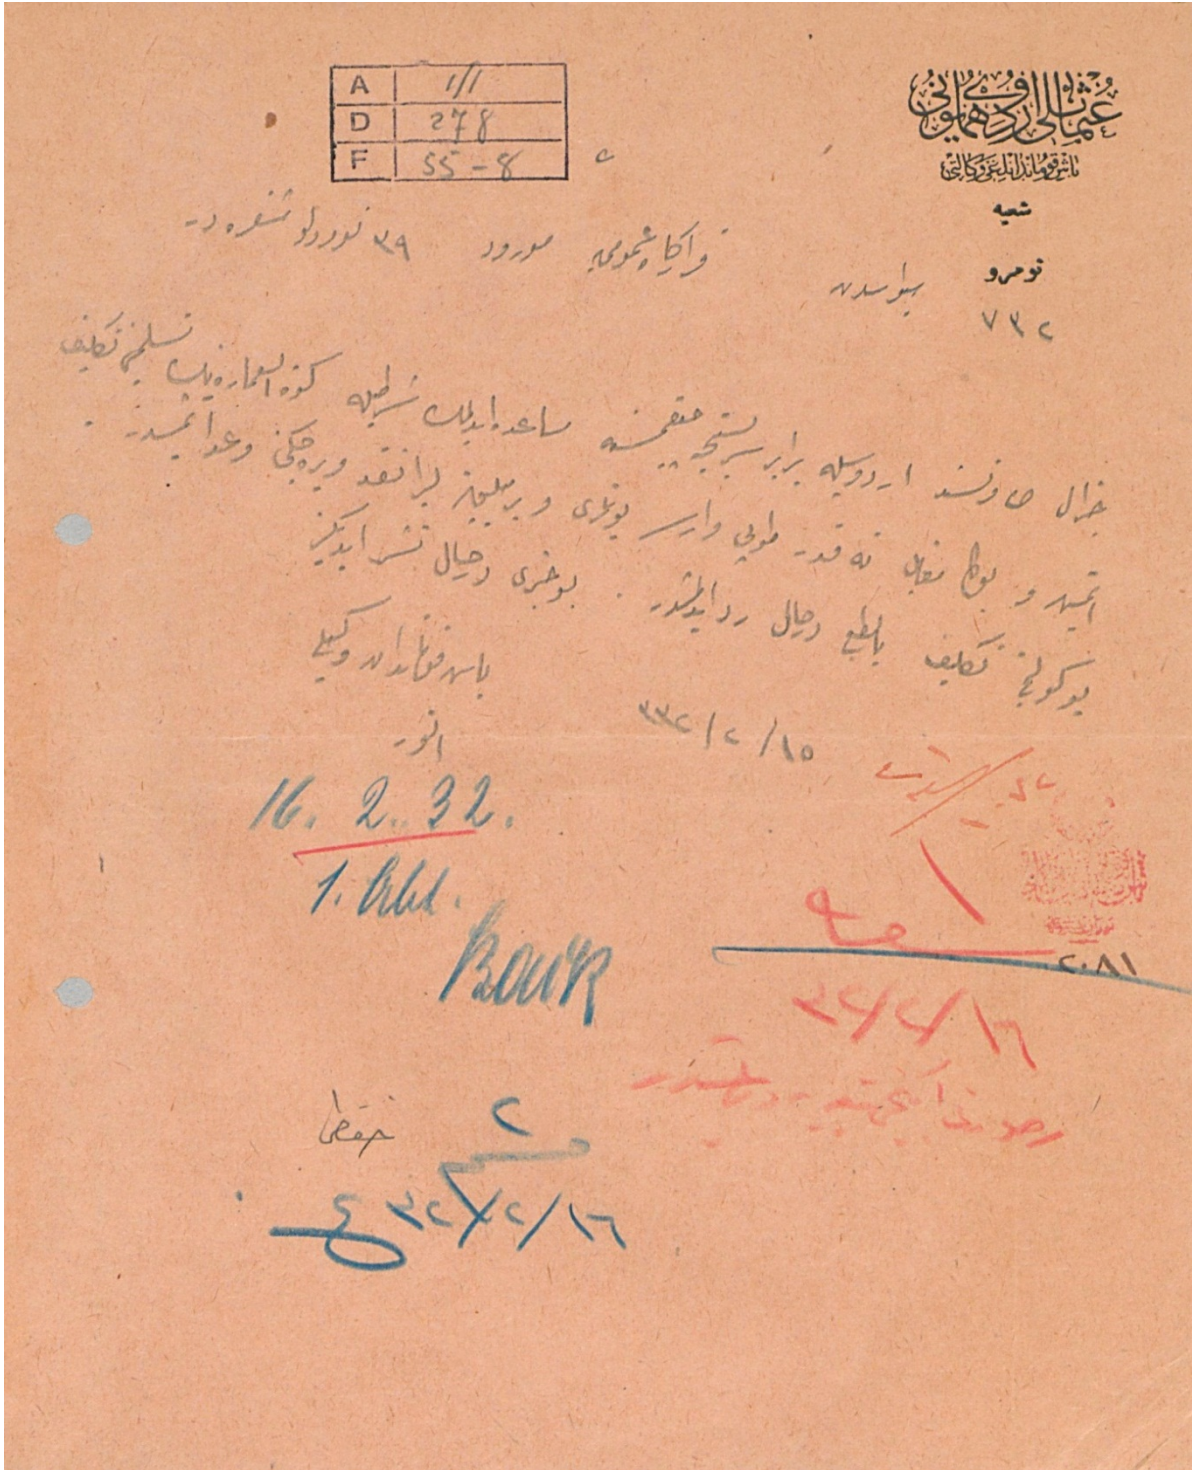 A ١/١
D ٢٧٨
F ٥٥-٨
عثمانلی اردوی همایونی
باش قوماندانلغی وکالتی
شعبه
نومرو
٧٣٢
قرارگاه عمومیدن مورود ٣٩ نومرولو شفره در
جنرال طاونسند اردوسیله برابر سربستجه چیقمسنه مساعده ایدلمك شرطیله كوت العماره نك تسلیمنی تكلیف
ایتمش و بوكا مقابل نه قدر طوپی وارسه بونلری و بر ملیون لیرا نقد ویره جكنی وعد ایتمشدر .
بو كولنج تكلیف بالطبع درحال رد ایدلمشدر . بو خبری درحال نشر ایدیكز
باش قوماندان وكیلی
انور
١٥/٢/٣٣٢
16. 2. 32.
1. Abt.
١
شعبه
٢٠٨١
١٦/٢/٣٢
حفظی
٢
١٦/٢/٣٢